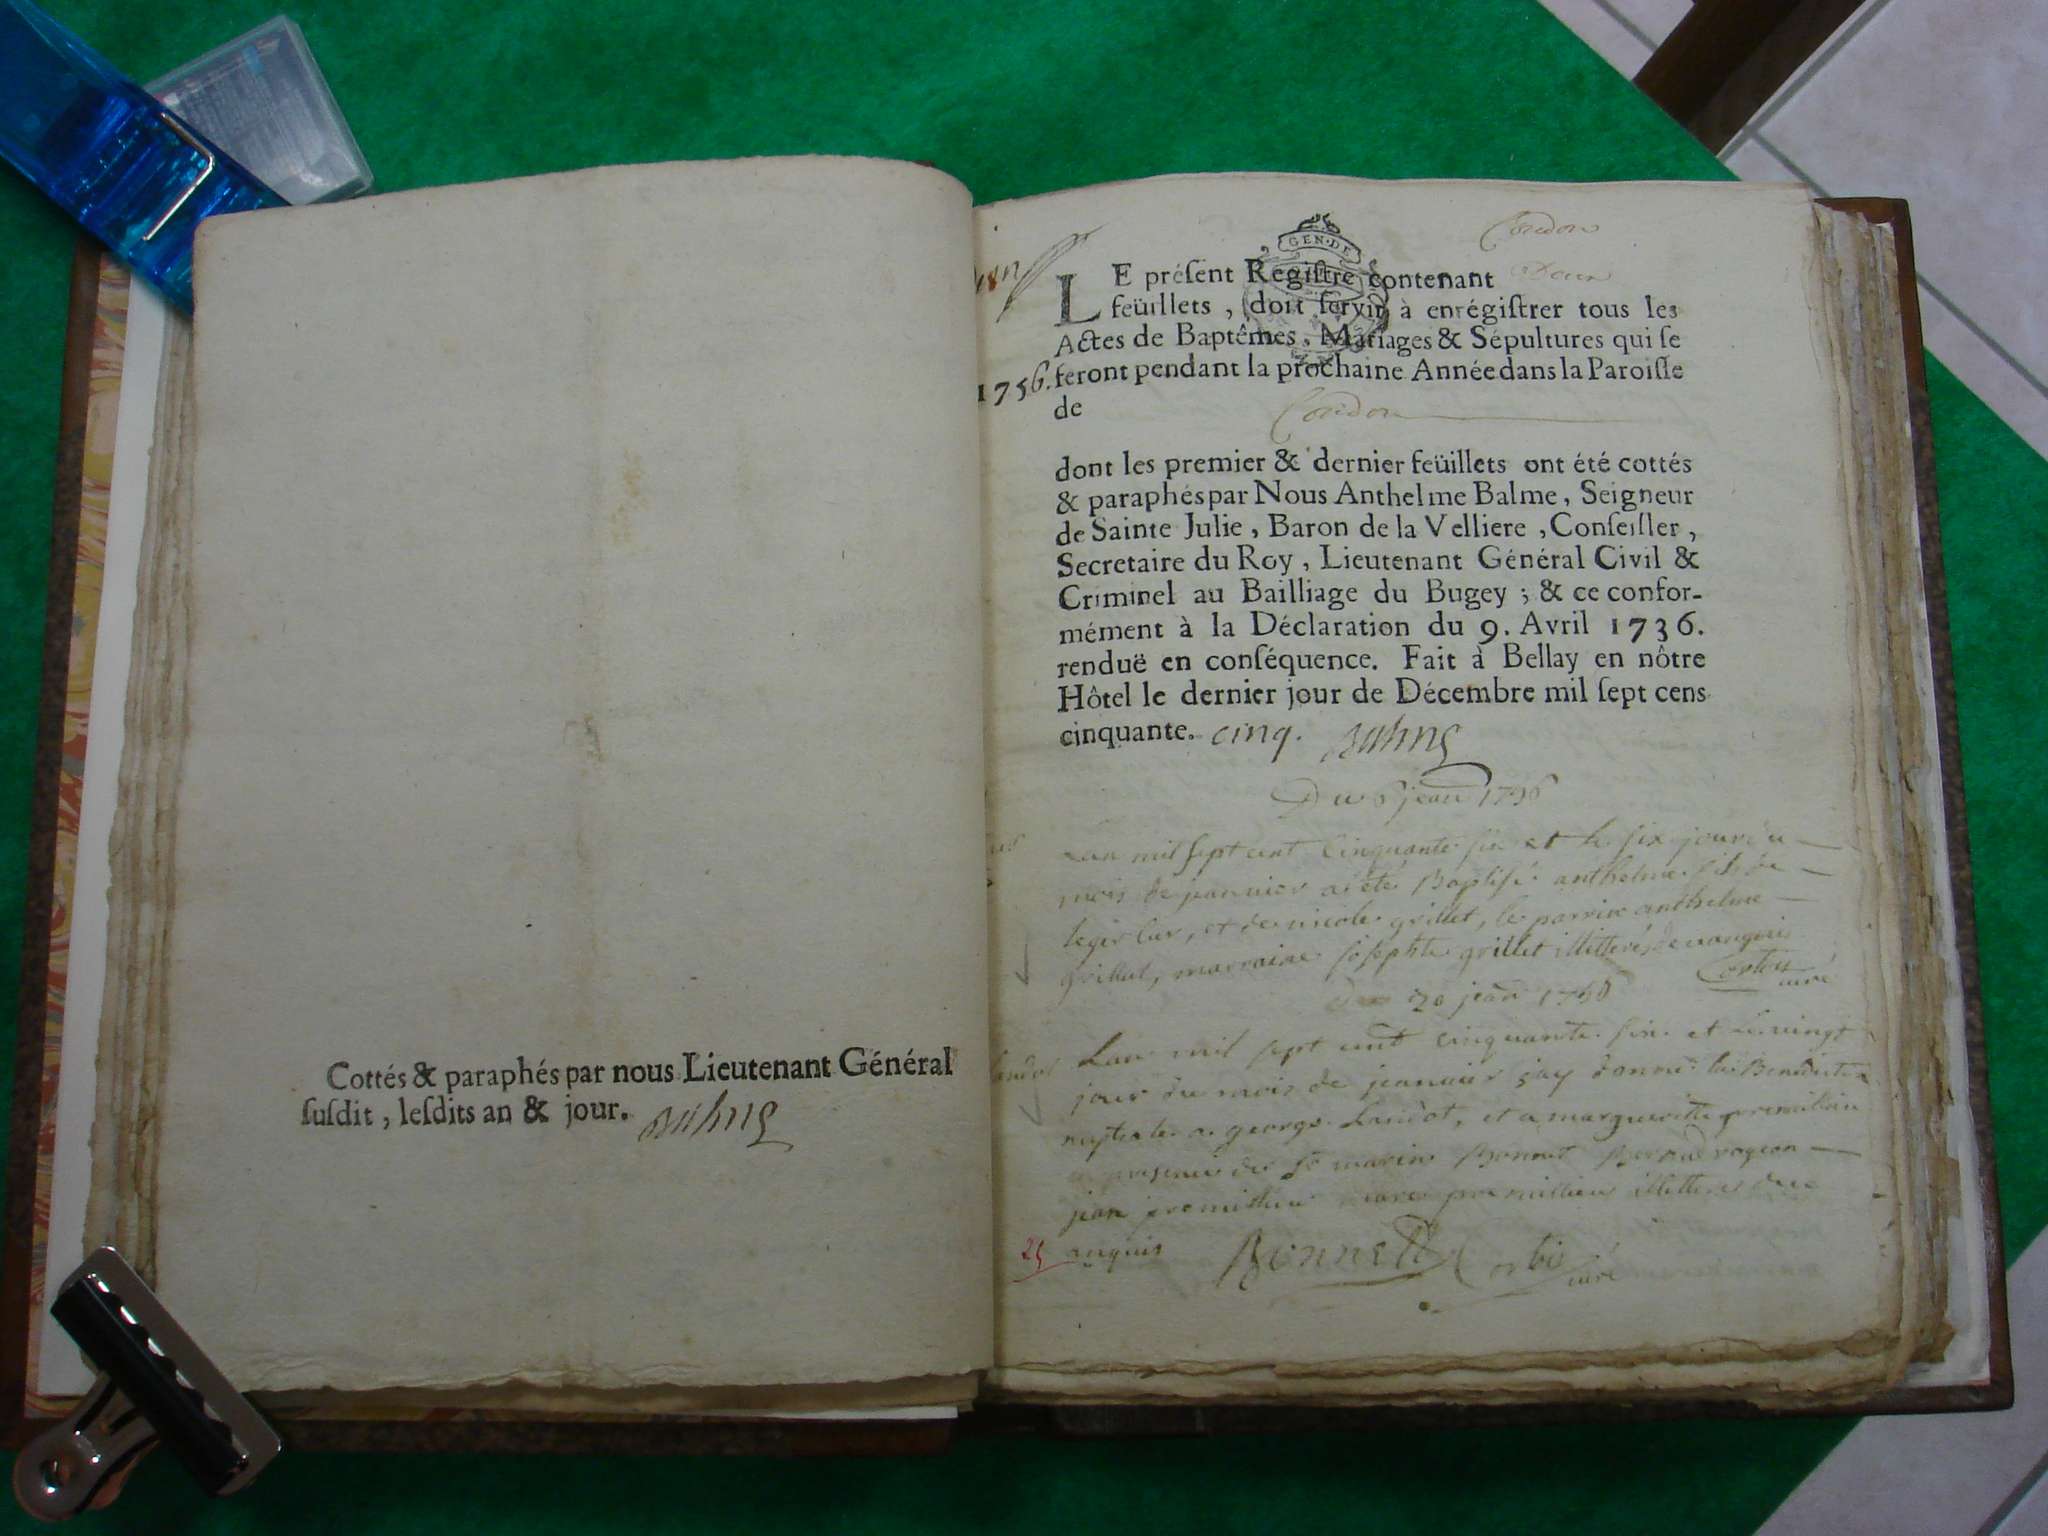 Cottés & paraphés par nous Lieutenant Général
ſuſdit, leſdits an & jour.
GEN·DE
Condon
LE préſent Regiſtre contenant
feüillets, doit ſervir à enrégiſtrer tous les
Actes de Baptêmes, Mariages & Sépultures qui ſe
1756. feront pendant la prochaine Année dans la Paroiſſe
de Condon
dont les premier & dernier feüillets ont été cottés
& paraphés par Nous Anthelme Balme, Seigneur
de Sainte Julie, Baron de la Velliere, Conſeiller,
Secretaire du Roy, Lieutenant Général Civil &
Criminel au Bailliage du Bugey; & ce confor-
mément à la Déclaration du 9. Avril 1736.
renduë en conſéquence. Fait à Bellay en nôtre
Hôtel le dernier jour de Décembre mil ſept cens
cinquante. cinq.
Du 6 jean 1756
Lan mil sept cent cinquante six et le six jour du
mois de jeanvier a été Baptisé anthelme fils de
et de nicole grillet, le parrin anthelme
grillet, marraine josephte grillet illitterés de
curé
20 jean 1756
Lan mil sept cent cinquante six et le vingt
jour du mois de jeanvier jay donné la Benediction
nuptiale a george Landot, et a margueritte premillieu
en presence de sr marin Bonnet
jean premillieu premillieu illitterés de
25
Bonnet
curé